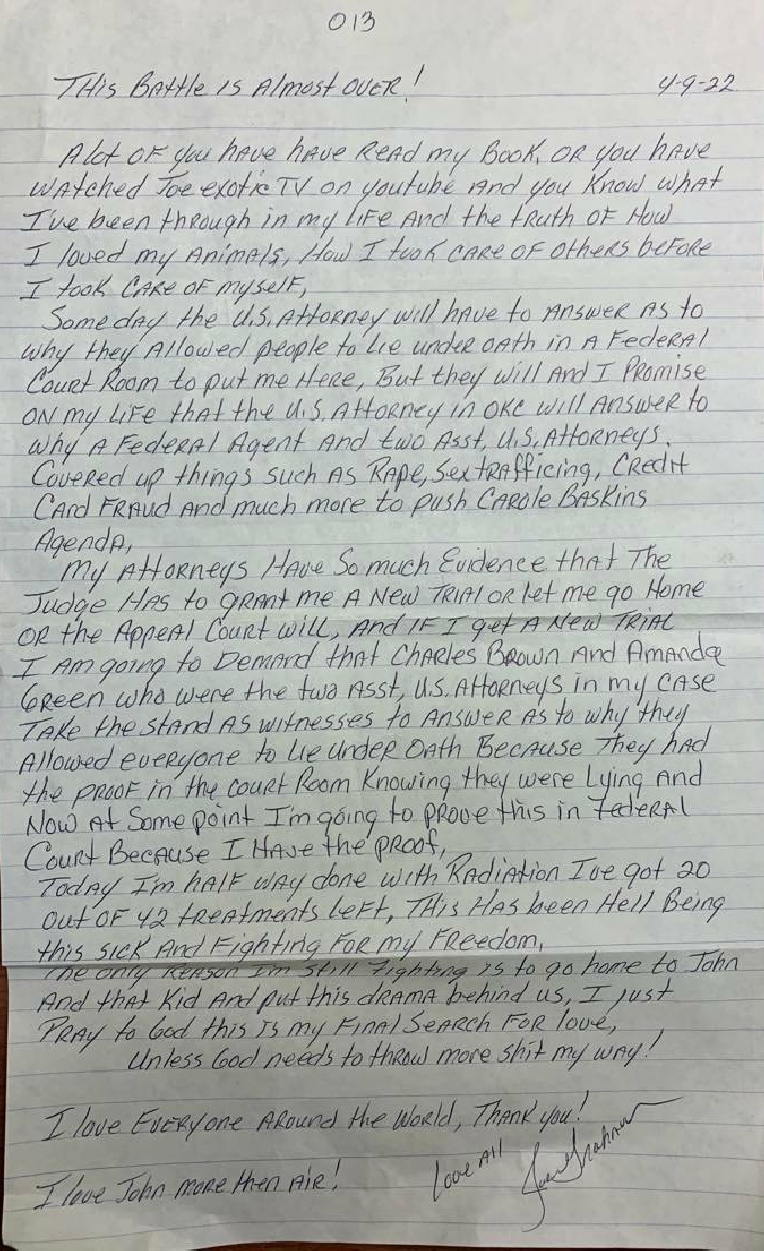 013
THis Battle is Almost over! 4-9-22
A lot of you have have Read my Book, or you have
watched Joe exotic TV on youtube And you Know what
I've been through in my life And the truth of How
I loved my Animals, How I took care of others before
I took care of myself,
Someday the U.S. Attorney will have to Answer as to
why they Allowed people to Lie under oath in A Federal
Court Room to put me Here, But they will And I Promise
on my life that the U.S. Attorney in OKC will Answer to
why A Federal Agent And two Asst, U.S. Attorneys.
Covered up things such As Rape, Sextrafficing, Credit
Card Fraud And much more to push Carole Baskins
Agenda,
My Attorneys Have So much Evidence that The
Judge Has to grant me A New Trial or let me go Home
or the Appeal Court will, And if I get A New Trial
I Am going to Demand that Charles Brown And Amanda
Green who were the two Asst, U.S. Attorneys in my case
Take the stand As witnesses to Answer As to why they
Allowed everyone to Lie under oath Because They had
the proof in the court Room Knowing they were Lying And
Now At Some point I'm going to prove this in Federal
Court Because I Have the proof,
Today I'm half way done with Radiation I've got 20
out of 42 treatments left, THis Has been Hell Being
this sick And Fighting For my Freedom,
The only Reason I'm Still Fighting is to go home to John
And that Kid And put this drama behind us, I just
Pray to God this is my Final Search For love,
Unless God needs to throw more shit my way!
I love Everyone Around the World, Thank you!
Love All
I love John more then Air!